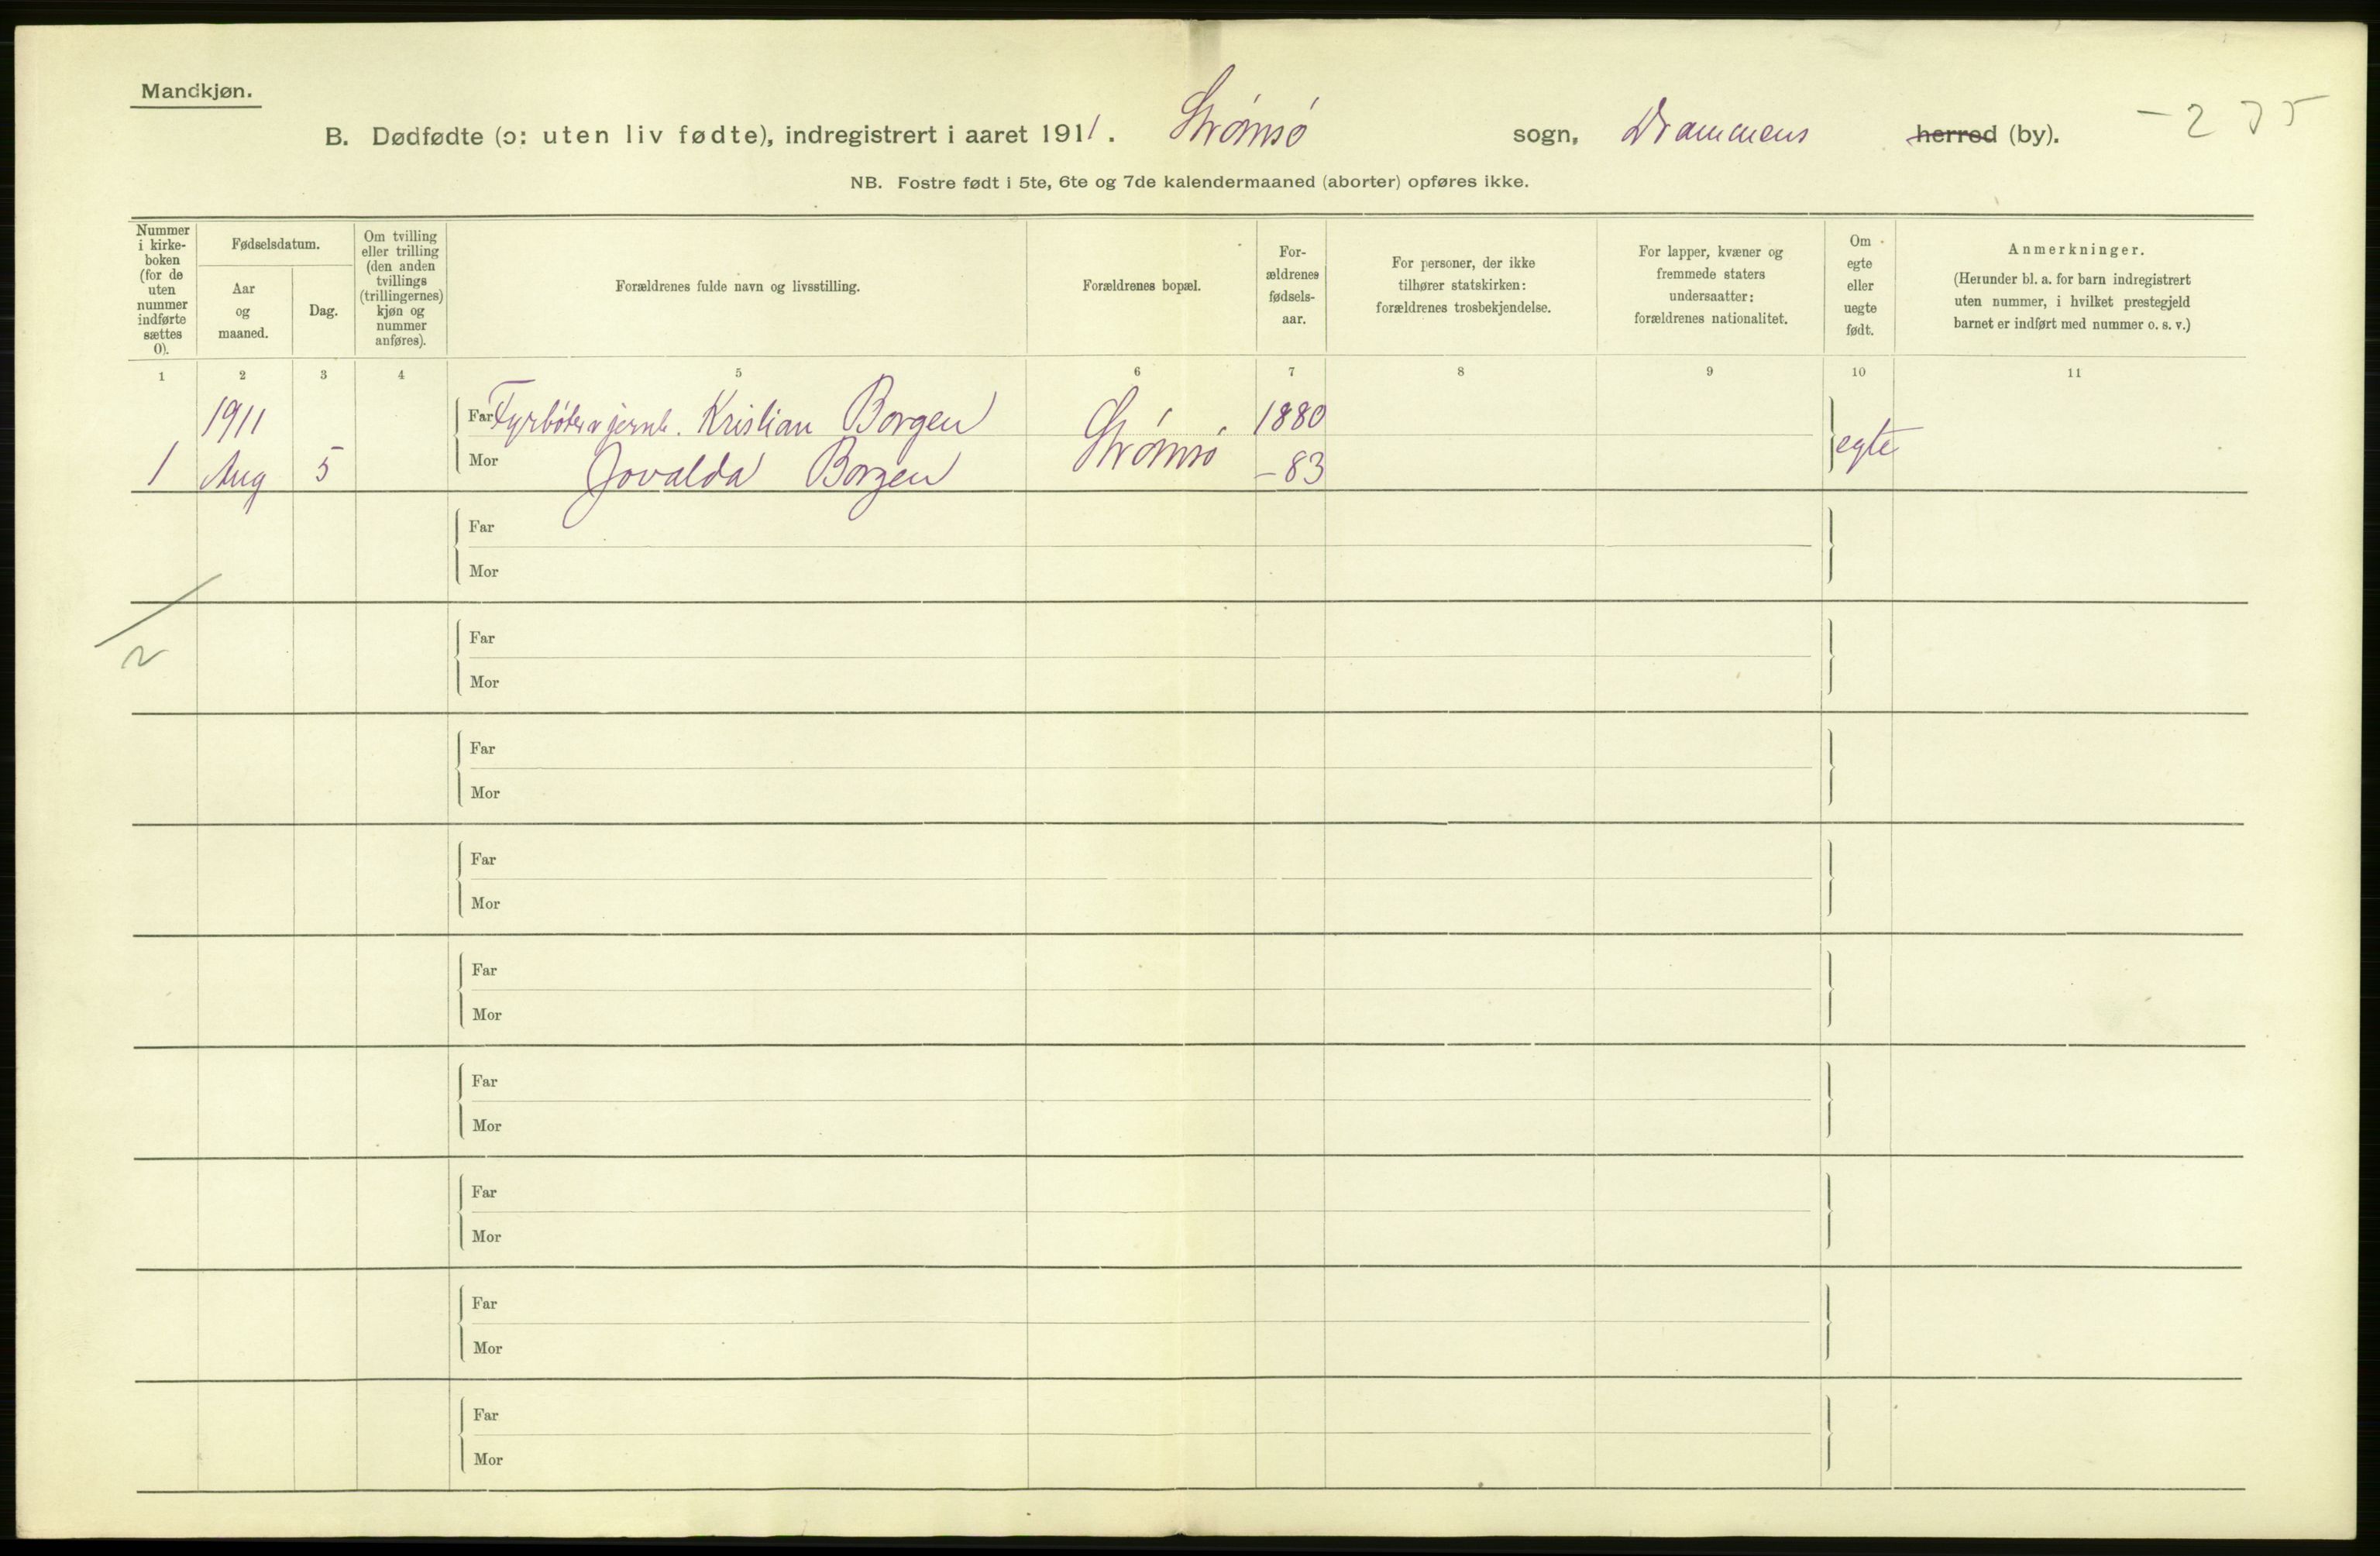 Mandkjøn.
B. Dødfødte (ɔ: uten liv fødte), indregistrert i aaret 1911. Strømsø sogn, Drammens herred (by). -235
NB. Fostre født i 5te, 6te og 7de kalendermaaned (aborter) opføres ikke.
Nummer
i kirke-
boken
(for de
uten
nummer
indførte
sættes
0).
Fødselsdatum.
Aar
og
maaned.
Dag.
Om tvilling
eller trilling
(den anden
tvillings
(trillingernes)
kjøn og
nummer
anføres).
Forældrenes fulde navn og livsstilling.
Forældrenes bopæl.
For-
ældrenes
fødsels-
aar.
For personer, der ikke
tilhører statskirken:
forældrenes trosbekjendelse.
For lapper, kvæner og
fremmede staters
undersaatter:
forældrenes nationalitet.
Om
egte
eller
uegte
født.
Anmerkninger.
(Herunder bl. a. for barn indregistrert
uten nummer, i hvilket prestegjeld
barnet er indført med nummer o. s. v.)
1 2 3 4 5 6 7 8 9 10 11
1911 Far Fyrbøter v jernb. Kristian Borgen Strømsø 1880 egte
1 Aug 5 Mor Jovalda Borgen -83
Far
Mor
2
Far
Mor
Far
Mor
Far
Mor
Far
Mor
Far
Mor
Far
Mor
Far
Mor
Far
Mor